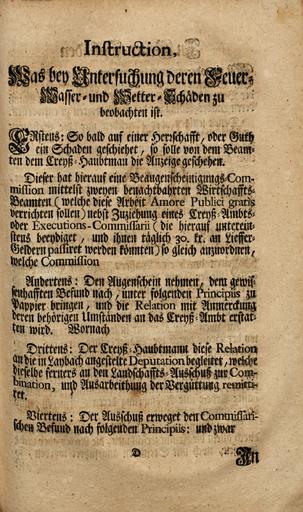 Instruction,
Was bey Untersuchung deren Feuer-
Wasser- und Wetter-Schäden zu
beobachten ist.
ERstens: So bald auf einer Herrschafft, oder Guth
ein Schaden geschiehet, so solle von dem Beam-
ten dem Creyß-Haubtman die Anzeige geschehen.
Dieser hat hierauf eine Beaugenscheinigungs-Com-
mission mittelst zweyen benachtbahrten Wirtschaffts-
Beamten (welche diese Arbeit Amore Publici gratis
verrichten sollen) nebst Zuziehung eines Creyß-Ambts-
oder Executions-Commissarii (die hierauf unterein-
stens beeydiget, und ihnen täglich 30. kr. an Lieffer-
Geldern passiret werden könnten) so gleich anzuordnen,
welche Commission
Andertens: Den Augenschein nehmen, dem gewis-
senhafften Befund nach, unter folgenden Principiis zu
Pappier bringen, und die Relation mit Anmerckung
deren behörigen Umständen an das Creyß-Ambt erstat-
ten wird. Wornach
Drittens: Der Creyß-Haubtmann diese Relation
an die in Laybach angestelte Deputation begleitet, welche
dieselbe ferners an den Landschaffts-Ausschuß zur Com-
bination, und Ausarbeithung der Vergüttung remitti-
ret.
Viertens: Der Ausschuß erweget den Commissari-
schen Befund nach folgenden Principiis: und zwar
D
In